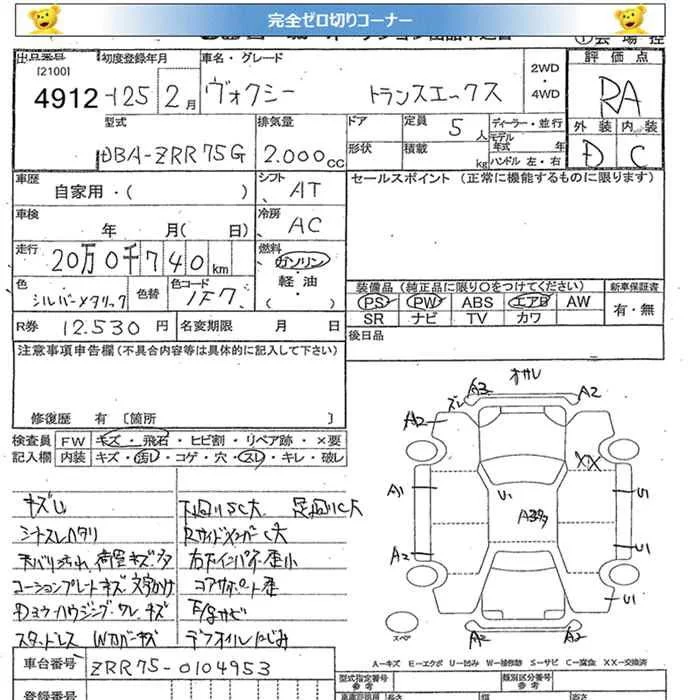 完全ゼロ切りコーナー
出品番号 初度登録年月 車名・グレード 2WD 評価点
[2100]
4912 H25 2月 ヴォクシー トランスエックス ・4WD RA
型式 排気量 ドア 定員 5人 ディーラー・並行 外装 内装
モデル年式 年
DBA-ZRR75G 2.000cc 形状 積載 kg ハンドル 左・右 D C
車歴 シフト AT セールスポイント (正常に機能するものに限ります)
自家用・( )
車検 冷房 AC
年 月( 日)
走行 20万0千740km 燃料 ガソリン・軽油・( )
色 シルバーメタリック 色替 色コード 1F7 装備品(純正品に限り○をつけてください) 新車保証書
PS PW ABS エアB AW 有・無
R券 12.530円 名変期限 月 日 SR ナビ TV カワ
注意事項申告欄(不具合内容等は具体的に記入して下さい) 後日品
修復歴 有 [箇所 ]
検査員 FW キズ・飛石・ヒビ割・リペア跡・×要
記入欄 内装 キズ・汚レ・コゲ・穴・スレ・キレ・破レ
オサレ
A3 A2
ズレ
A2
XX
A1 U1 A3多 U1
A2 U1
U1
スペア A2 A2
キズU 下回りSC大 足回りC大
シートスレ
天バリ汚れ
コーションプレートキズ コアサポート歪
Dミラーハウジング ワレ キズ E/gサビ
スタッドレス Wカバーキズ デフオイルにじみ
A−キズ E−エクボ U−凹み W−補修跡 S−サビ C−腐食 XX−交換済
車台番号 ZRR75-0104953
型式指定番号 参考 類別区分番号 参考
登録番号 長さ 幅 高さ